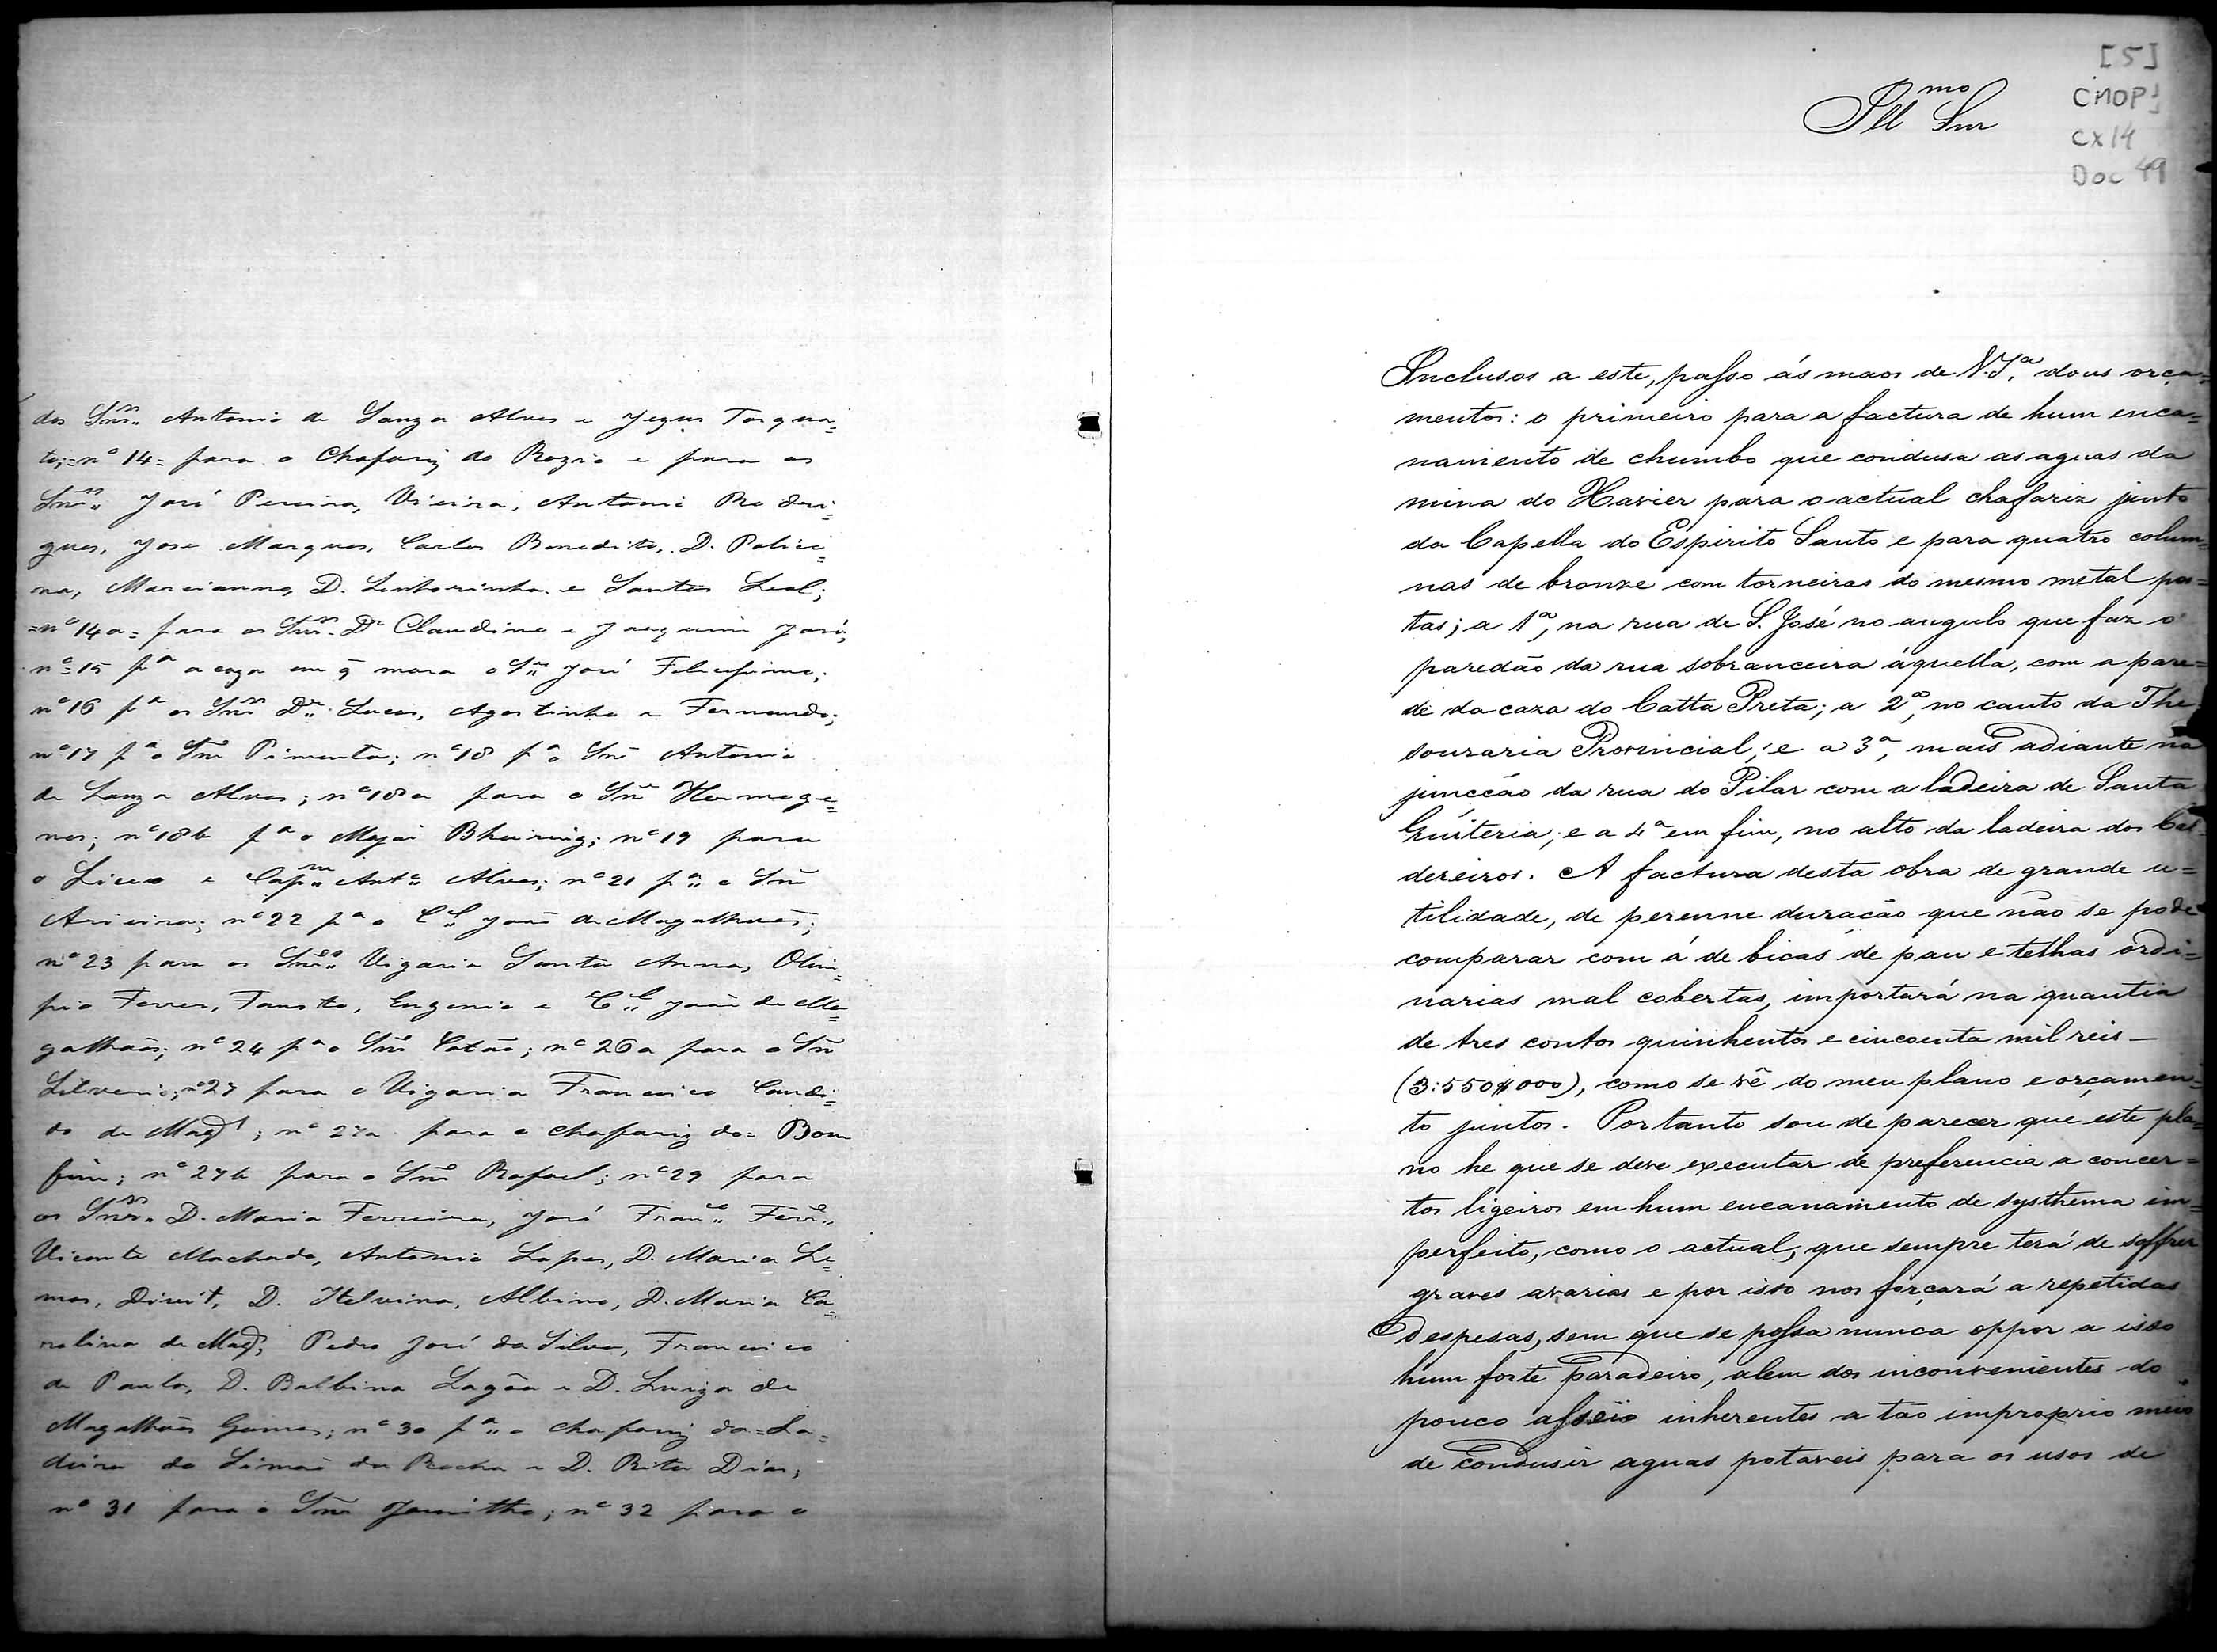 dos Snrs. Antonio de Souza Alves e Jezus Torqua=
to; =nº 14= para o Chafariz do Rozrio e para os
Snrs. José Pereira, Vieira, Antonio Rodri=
gues, Jose Marques, Carlos Benedito, D. Polici=
na, Marcianno, D. Senhorinha e Santos Leal;
=nº 14a= para os Snrs. Dr Claudino e Joaquim José;
nº 15 pª a caza em q̃ mora o Snr José
nº 16 pª os Snrs Dr. Lucas, Agostinho e Fernando;
nº 17 pª o Snr Pimenta; nº 18 pª o Snr Antonio
de Souza Alves; nº 18a para o Snr Hermoge=
nes; nº 18b pª o Major Bhering; nº 19 para
o Liceo e Capm. Antº Alves; nº 21 pª o Snr
nº 22 pª o Cel João de Magalhães;
nº 23 para os Snrs. Vigario Santa Anna, Olim=
pio Ferrer, Fausto, Eugenio e Cel João de Ma=
galhães; nº 24 pª o Snr Catão; nº 26a para o Snr
Silverio; nº 27 para o Vigario Francisco Candi=
do de ; nº 27a para o chafariz do= Bom
fim; nº 27b para o Snr Rafael; nº 29 para
os Snrs. D. Maria Ferreira, José Franco Ferra.
Vicente Machado, Antonio Lopes, D. Maria Le=
mos, D. Albino, D. Maria Ca=
rolina de Pedro José da Silva, Francisco
de Paula, D. Balbina Lagôa e D. Luiza de
Magalhães Gomes; nº 30 pª o chafariz da= La=
deira do Simão da Rocha e D. Rita Dias;
nº 31 para o Snr ; nº 32 para o
[5]
CMOP
CX 14
Doc 49
Illmo Snr
Inclusos a este, passo ás maos de V.Sª. dous orça=
mentos: o primeiro para a factura de hum enca=
namento de chumbo que condusa as aguas da
mina do Xavier para o actual chafariz junto
da Capella do Espirito Santo e para quatro colum=
nas de bronze com torneiras do mesmo metal pos=
tas; a 1ª, na rua de S. José no angulo que faz o
paredão da rua sobranceira áquella, com a pare=
de da caza do Catta Preta; a 2ª, no canto da The
souraria Provincial; e a 3ª, mais adiante na
juncção da rua do Pilar com a ladeira de Santa
Quiteria; e a 4ª em fim, no alto da ladeira dos Cal
dereiros. A factura desta obra de grande u=
tilidade, de perenne duração que não se pode
comparar com á de bicas de pau e telhas ordi=
narias mal cobertas, importará na quantia
de tres contos quinhentos e cincoenta mil reis—
(3:550$000), como se vê do meu plano e orçamen=
to juntos. Portanto sou de parecer que este pla=
no he que se deve executar de preferencia a concer=
tos ligeiros em hum encanamento de systhema im=
perfeito, como o actual, que sempre terá de soffrer
graves avarias e por isso nos forçará a repetidas
despesas, sem que se possa nunca oppor a isso
hum forte paradeiro, alem dos inconvenientes do
pouco asseio inherentes a tao improprio meio
de condusir aguas potaveis para os usos de